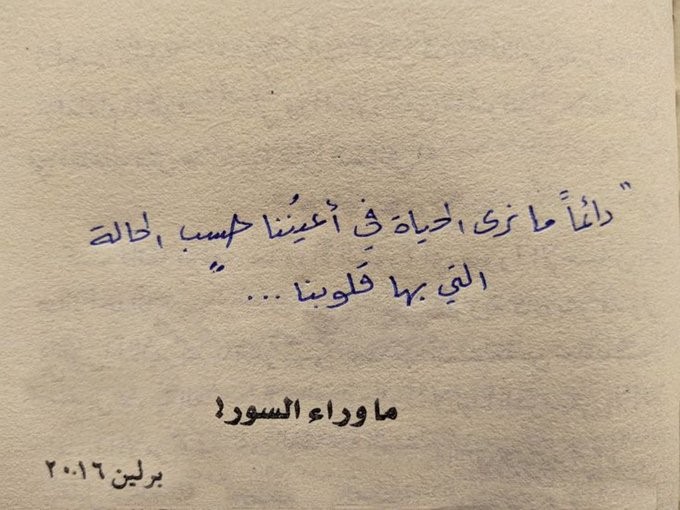 "دائماً ما نرى الحياة في أعينُنا حسب الحالة
التي بها قَلوبنا ..."
ما وراء السور!
برلين ٢٠١٦